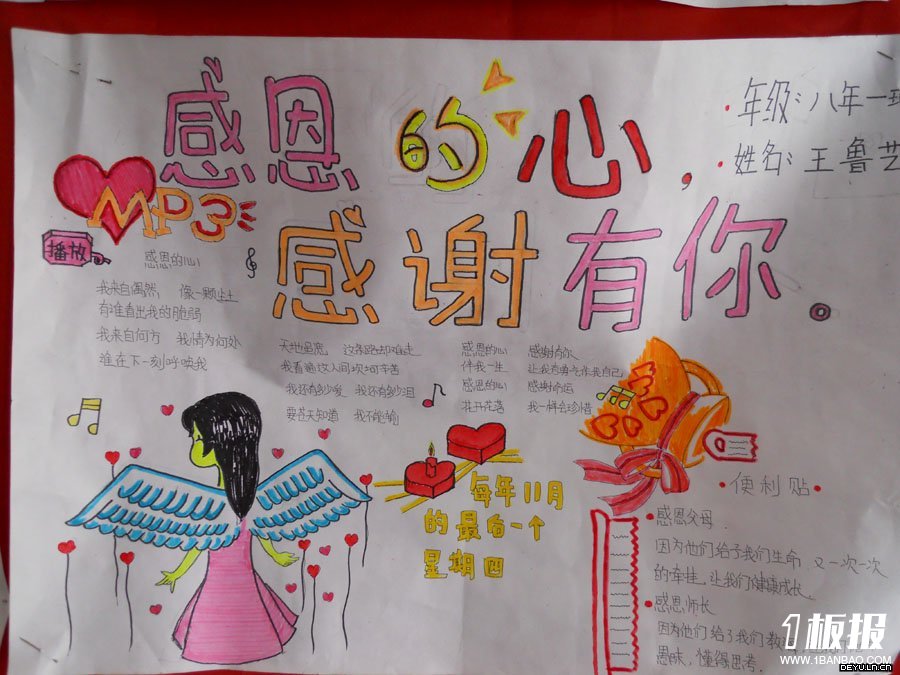 感恩的心，
感谢有你。
年级：八年一班
姓名：王鲁艺
MP3
播放
感恩的心
我来自偶然， 像一颗尘土
有谁看出我的脆弱
我来自何方 我情归何处
谁在下一刻呼唤我
天地虽宽， 这条路却难走
我看遍这人间坎坷辛苦
我还有多少爱 我还有多少泪
要苍天知道 我不认输
感恩的心 感谢有你
伴我一生 让我有勇气作我自己
感恩的心 感谢命运
花开花落 我一样会珍惜
每年11月
的最后一个
星期四
便利贴
感恩父母
因为他们给了我们生命，又一次一次
的牵挂，让我们健康成长。
感恩师长
因为他们给了我们教
愚昧，懂得思考．
1板报
WWW.1BANBAO.COM
DEYU.LN.CN